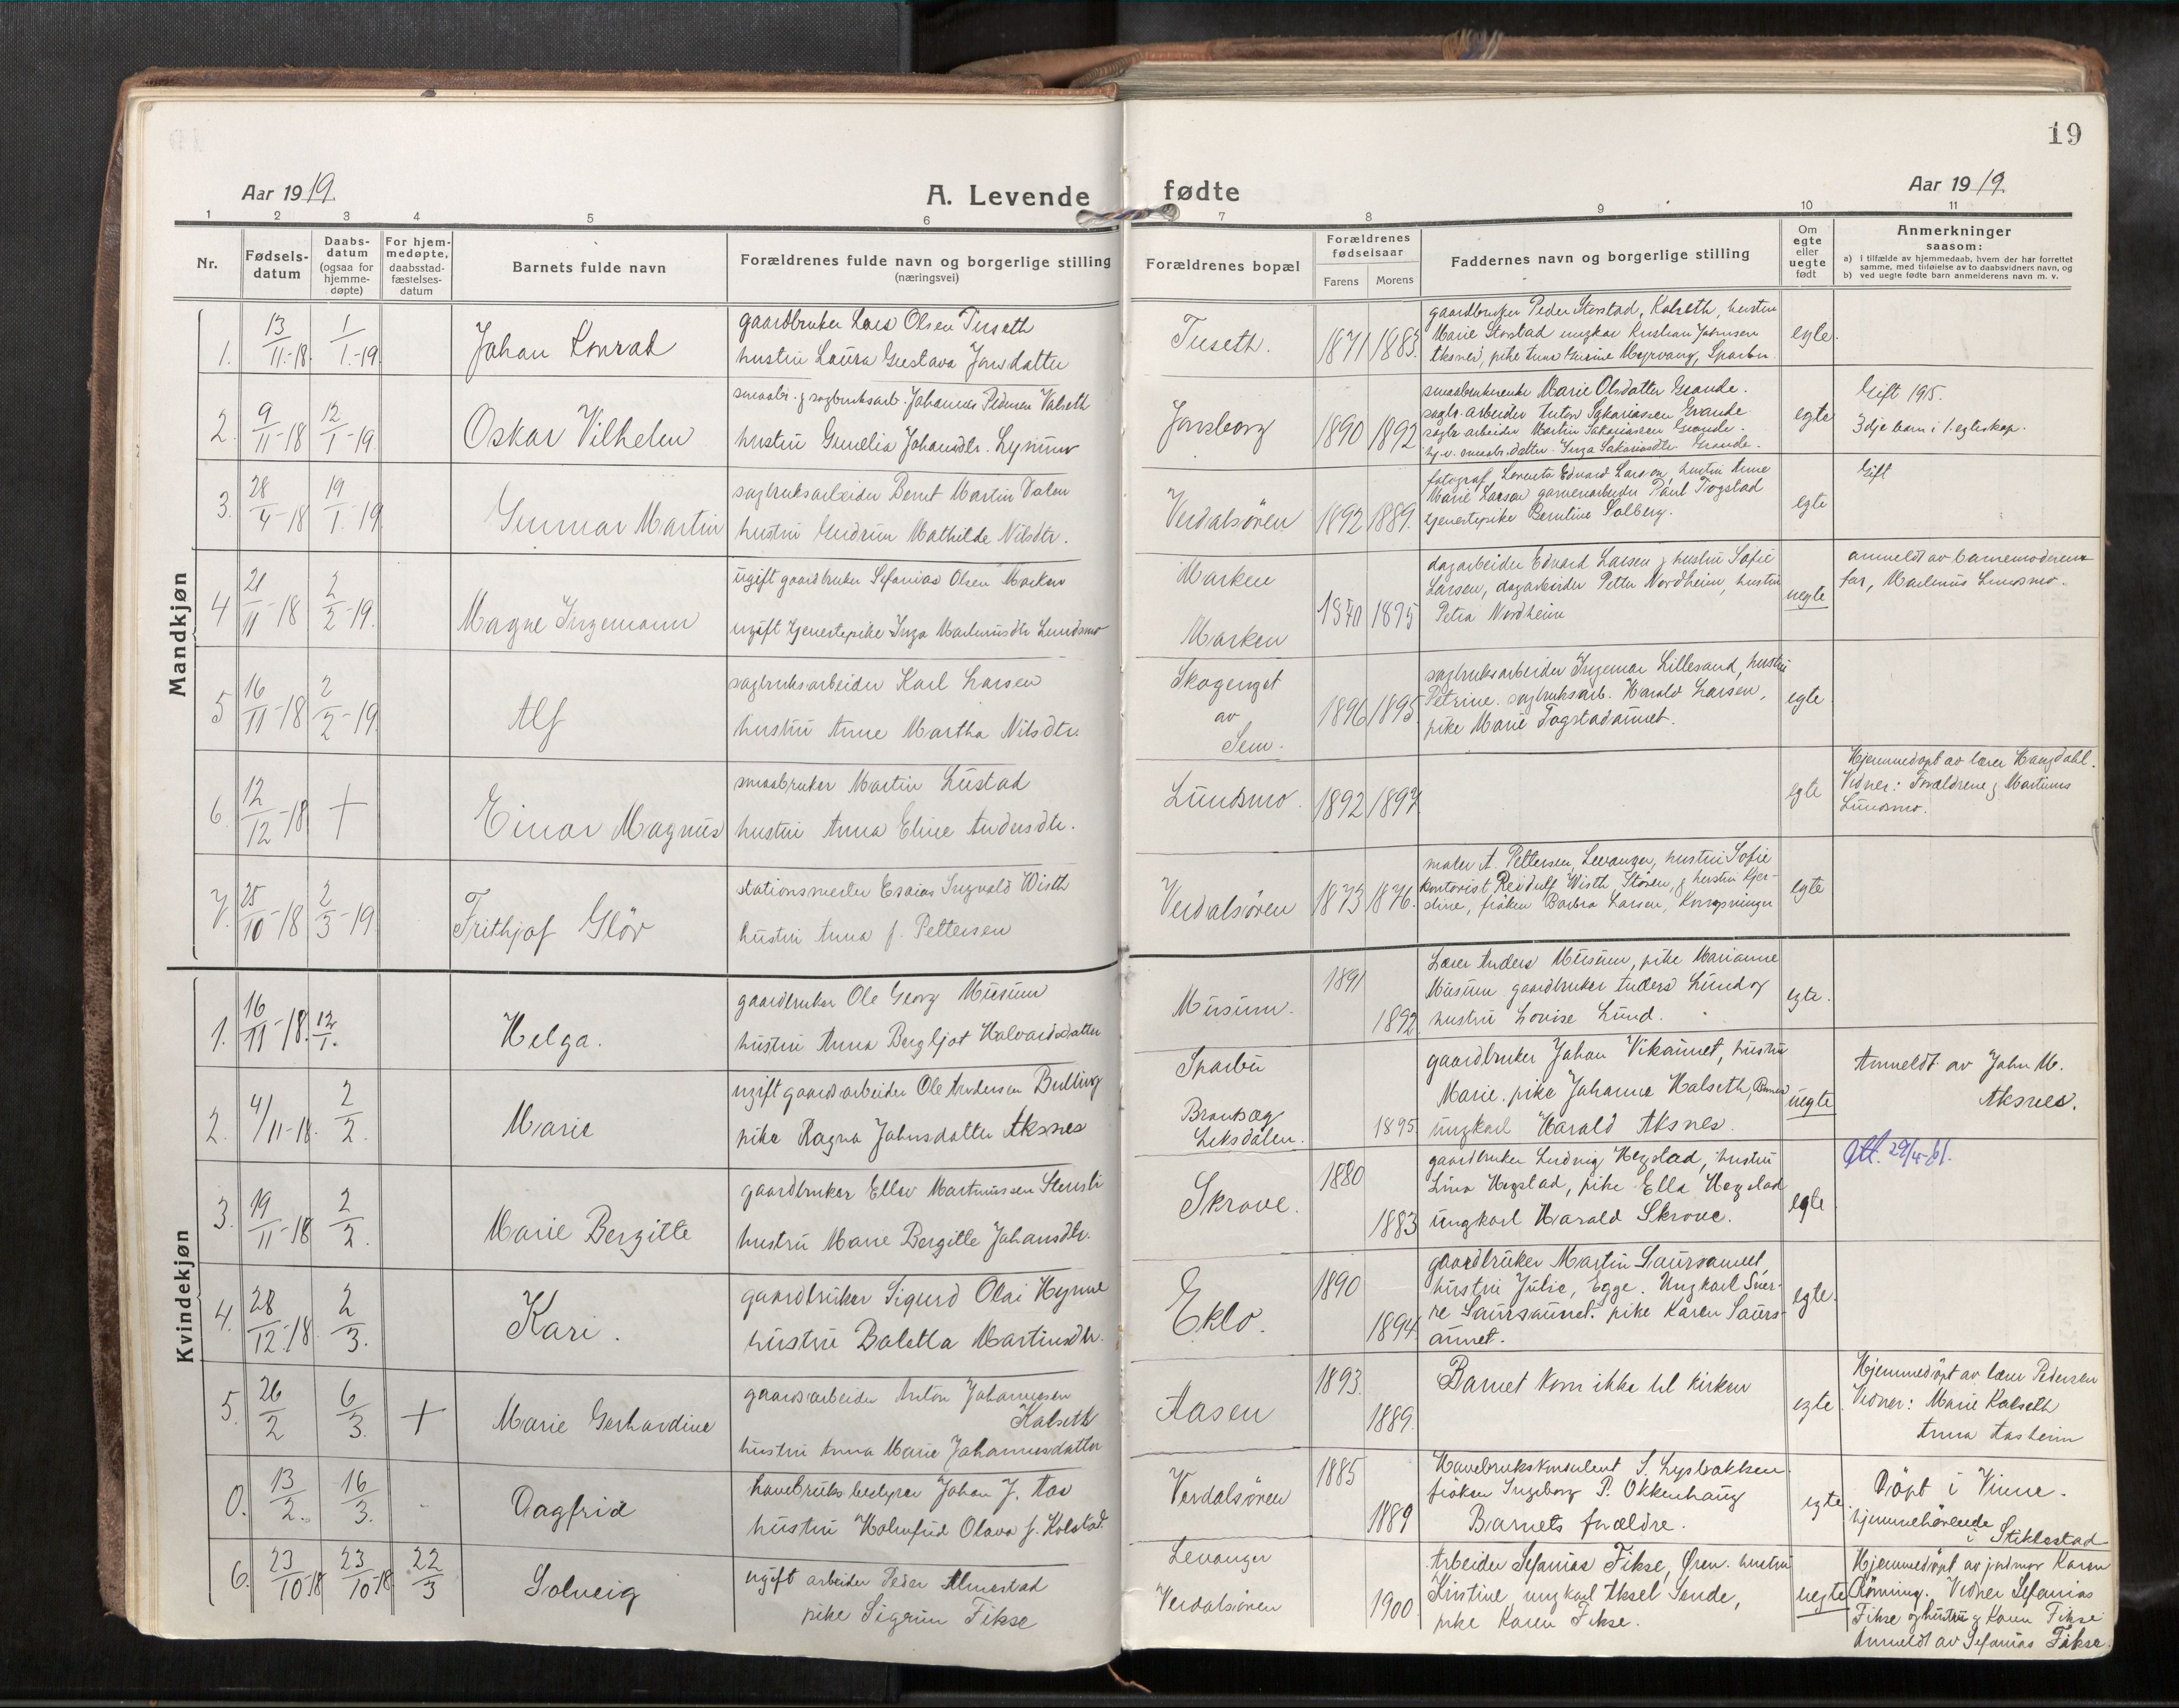 19
Aar 1919.
A. Levende fødte
Aar 1919.
1 2 3 4 5 6 7 8 9 10 11
Nr.
Fødsels-
datum
Daabs-
datum
(ogsaa for
hjemme-
døpte)
For hjem-
medøpte,
daabsstad-
fæstelses-
datum
Barnets fulde navn
Forældrenes fulde navn og borgerlige stilling
(næringsvei)
Forældrenes bopæl
Forældrenes
fødselsaar
Farens Morens
Faddernes navn og borgerlige stilling
Om
egte
eller
uegte
født
Anmerkninger
saasom:
a) i tilfælde av hjemmedaab, hvem der har forrettet
samme, med tilføielse av to daabsvidners navn, og
b) ved uegte fødte barn anmelderens navn m. v.
Mandkjøn
1. 13/11-18. 1/1-19. Johan Konrad
gaardbruker Lars Olsen Tuseth
hustru Laura Gustava Jonsdatter
Tuseth. 1871 1883.
gaardbruker Peder Storstad, Kalseth, hustru
Marie Storstad ungkar Kristian Johnsen
Aksnes, pike Anna Gurine Myrvang, Sparbu
egte.
2. 9/11-18 12/1-19. Oskar Vilhelm
smaabr. & sagbruksarb. Johannes Pedersen Valseth
hustru Gunelia Johansdtr. Lyngmo
Jonsborg 1890 1892
smaabrukerenke Marie Olsdatter Grande.
sagbr. arbeider Anton Sakariassen Grande
sagbr arbeider Martin Sakariassen Grande.
hj.v. smaabr.datter Inga Sakariasdtr Grande.
egte
Gift 1915.
3dje barn i 1. egteskap.
3. 28/4-18 19/1-19 Gunnar Martin
sagbruksarbeider Bernt Martin Dalen
hustru Gudrun Mathilde Nilsdtr.
Verdalsören 1892 1889.
fotograf Lorents Edvard Larsen, hustru Anne
Marie Larsen garverarbeider Paul Togstad
tjenestepike Berntine Solberg.
egte
Gift
4 21/11-18 2/2-19. Magne Ingemann
ugift gaardbruker Sefanias Olsen Marken
ugift tjenestepike Inga Marthinusdtr Lundsmo
Marken
Marken
1870 1895
dagarbeider Edvard Larsen & hustru Sofie
Larsen, dagarbeider Petter Nordheim, hustru
Petra Nordheim
uegte
anmeldt av barnemoderens
far, Martinus Lundsmo.
5 16/11-18 2/2-19. Alf
sagbruksarbeider Karl Larsen
hustru Anne Martha Nilsdtr.
Skogenget
av
Sem.
1896 1895.
sagbruksarbeider Ingemar Lillesand, hustru
Petrine. sagbruksarb. Harald Larsen,
pike Marie Togstadaunet.
egte
6. 12/12-18 + Einar Magnus
smaabruker Martin Lustad
hustru Anna Eline Andersdtr.
Lundsmo. 1892 1897.
egte
Hjemmedöpt av lærer Haugdahl.
Vidner: Forældrene & Martinus
Lundsmo.
7. 25/10-18 2/3-19 Frithjof Glöv
stationsmester Esaias Ingvald Wisth
hustru Anna f. Pettersen
Verdalsören 1873 1876.
maler A. Pettersen, Levanger, hustru Sofie
kontorist Reidulf Wisth Stören, & hustru Gjer-
dine, fröken Barbra Larsen, Kongsvinger
egte
Kvindekjøn
1. 16/11-18. 12/1. Helga.
gaardbruker Ole Georg Musum
hustru Anna Bergljot Halvardsdatter
Musum. 1891 1892
Lærer Anders Musum, pike Marianne
Musum gaardbruker Anders Lund og
hustru Lovise Lund.
egte.
2. 4/11-18. 2/2. Marie
ugift gaardsarbeider Ole Andersen Bulling
pike Ragna Johnsdatter Aksnes
Sparbu
Leksdalen.
1895.
gaardbruker Johan Vikaunet, hustru
Marie. pike Johanna Halseth,
ungkarl Harald Aksnes.
uegte
Anmeldt av John M.
Aksnes.
3. 19/11-18 2/2. Marie Bergitte
gaardbruker Ellev Martinussen Stensli
hustru Marie Bergitte Johansdtr.
Skrove. 1880 1883
gaardbruker Ludvig Hegstad, hustru
Lina Hegstad, pike Ella Hegstad
ungkarl Harald Skrove.
egte
Att. 29/4-61.
4. 28/12-18. 2/3. Kari.
gaardbruker Sigurd Olai Hynne
hustru Baletta Martinsdtr.
Eklo. 1890 1894.
gaardbruker Martin Saursaunet,
hustru Julie, Egge. Ungkarl Sver-
re Saursaunet. pike Karen Saurs-
aunet.
egte.
5. 26/2 6/3. + Marie Gerhardine
gaardsarbeider Anton Johannesen
Kalseth
hustru Anna Marie Johannesdatter
Aasen 1893. 1889.
Barnet kom ikke til kirken
egte.
Hjemmedöpt av lærer Pedersen
Vidner: Marie Kalseth
Anna Aasheim
0. 13/2. 16/3. Dagfrid
havebruksbestyrer Johan J. Aas
hustru Holmfrid Olava f. Kolstad.
Verdalsören 1885 1889
Havebrukskonsulent S. Lysbakken.
fröken Ingeborg P. Okkenhaug
Barnets forældre.
egte.
Döpt i Vinne.
hjemmehörende
i Stiklestad
6. 23/10-18 23/10-18. 22/3 Solveig
ugift arbeider Peder Almestad
pike Sigrun Fikse
Levanger
Verdalsören
1900.
Arbeider Sefanias Fikse, Øren. hustru
Kristine, ungkarl Aksel Sende,
pike Karen Fikse.
uegte
Hjemmedöpt av jordmor Karen
Rönning. Vidner Sefanias
Fikse og hustru & Karen Fikse
Anmeldt av Sefanias Fikse.